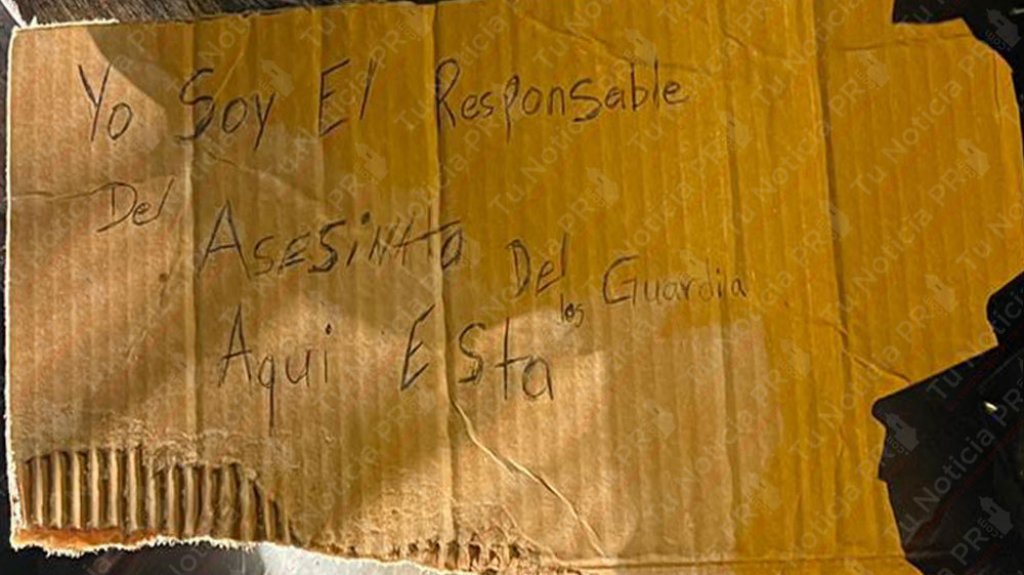 Yo Soy El Responsable
Del Asesinato Del los Guardia
Aqui Esta
Tu Noticia PR